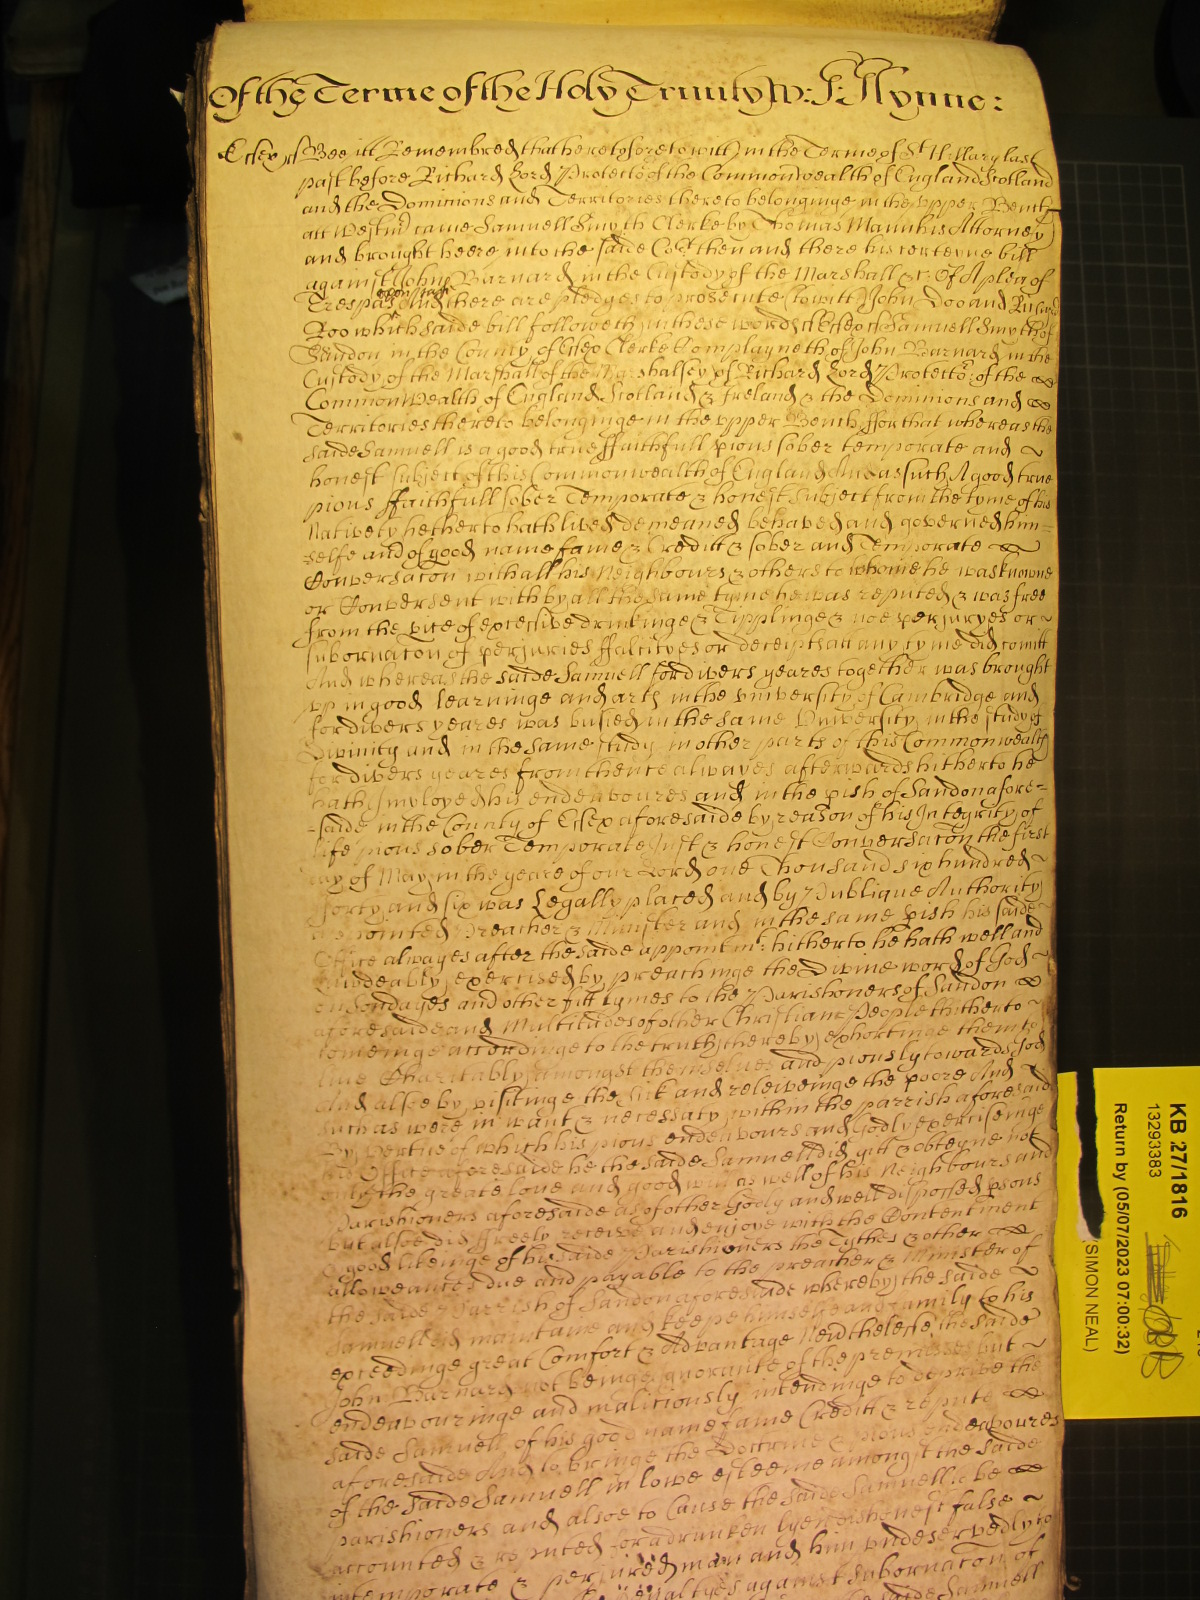 Of the Terme of the Holy Trinity W: S: Wynne:
Essex ss Bee itt Remembred that heretofore to witt in the Terme of St Hillary last
past before Richard Lord Protector of the Commonwealth of England Scotland
and the Dominions and Territories thereto belonginge in the vpper Bench
att Westmr came Samuell Smyth Clerke by Thomas Mann his Attorney
and brought heere into the saide Cort then and there his certeyne bill
against John Barnard in the Custody of the Marshall &c Of A plea of
Trespas And there are pledges to prosecute (to witt) John Doo and Richard
Roo which saide bill followeth in these words ss Essex ss Samuell Smyth of
Sandon in the County of Essex Clerke Complayneth of John Barnard in the
Custody of the Marshall of the Marshalsey of Richard Lord Protector of the
CommonWealth of England Scotland & Ireland & the Dominions and
Territories thereto belonginge in the vpper Bench ffor that whereas the
saide Samuell is a good true ffaithfull pious sober temporate and
honest subject of this Commonwealth of England And as such A good true
pious ffaithfull sober Temporate & honest Subject from the tyme of his
Nativety hetherto hath lived demeaned behaved and governed him=
selfe and of good name fame & Creditt & sober and Temporate
Conversacon with all his Neighbours & others to whome he was knowne
or Conversent with by all the same tyme he was reputed & was free
from the vice of excessive drinkinge & Tipplinge & noe perjuryes or
subornacon of perjuries ffalcityes or deceipts att any tyme did comitt
And whereas the saide Samuell for divers yeares together was brought
vp in good learninge and arts in the vniversity of Cambridge and
for divers yeares was busied in the same Vniversity in the study of
Divinity and in the same study in other parts of this Commonwealth
for divers yeares from thence alwayes afterwards hitherto he
hath Imployed his endeavoures and in the pish of Sandon afore=
=saide in the County of Essex aforesaide by reason of his Integrity of
life pious sober Temporate Just & honest Conversacon the first
day of May in the yeare of our Lord one Thousand six hundred
fforty and six was Legally placed and by Publique Authority
appointed Preacher & Minister and in the same pish his saide
Office alwayes after the saide appointmt: hitherto he hath well and
laudeably exercised by preachinge the Divine word of God
on Sondayes and other fitt tymes to the Parishoners of Sandon
aforesaide and Multitudes of other Christian People thither to
comeinge accordinge to the truth thereby exhortinge them to
live Charitably amongst themselves and piously towards God
And alsoe by visitinge the sick and releiveinge the poore And
such as were in want & necessaty within the parrish aforesaid
By vertue of which his pious endeavours and Godly exerciseinge
his Office aforesaide he the saide Samuell did gitt & obteyne not
only the greate love and good will as well of his Neighbours and
Parishioners aforesaide as of other Godly and well disposed psons
but alsoe did ffreely receive and enjoye with the Contentment
& good likeinge of his saide Parishioners the Tythes & other
alloweances due and payable to the preacher & Minister of
the saide Parrish of Sandon aforesaide whereby the saide
Samuell did maintaine and keepe himselfe and family to his
exceedinge great Comfort & Advantage Neverthelesse the saide
John Barnard not beinge ignorante of the premisses but
endeavouringe and maliciously intendinge to deprive the
saide Samuell of his good name fame Creditt & repute
aforesaide And to bringe the Doctrine & pious endeavoures
of the saide Samuell in lowe esteeme amongst the saide
parishioners and alsoe to Cause the saide Samuell to be
accounted & reputed for a drunken lyer dishonest false
intemporate & perjured man and him vndeservedly to
penaltyes against Subornacon of
saide Samuell
KB 27/1816
13293383
Return by (05/07/2023 07:00:32)
(SIMON NEAL)